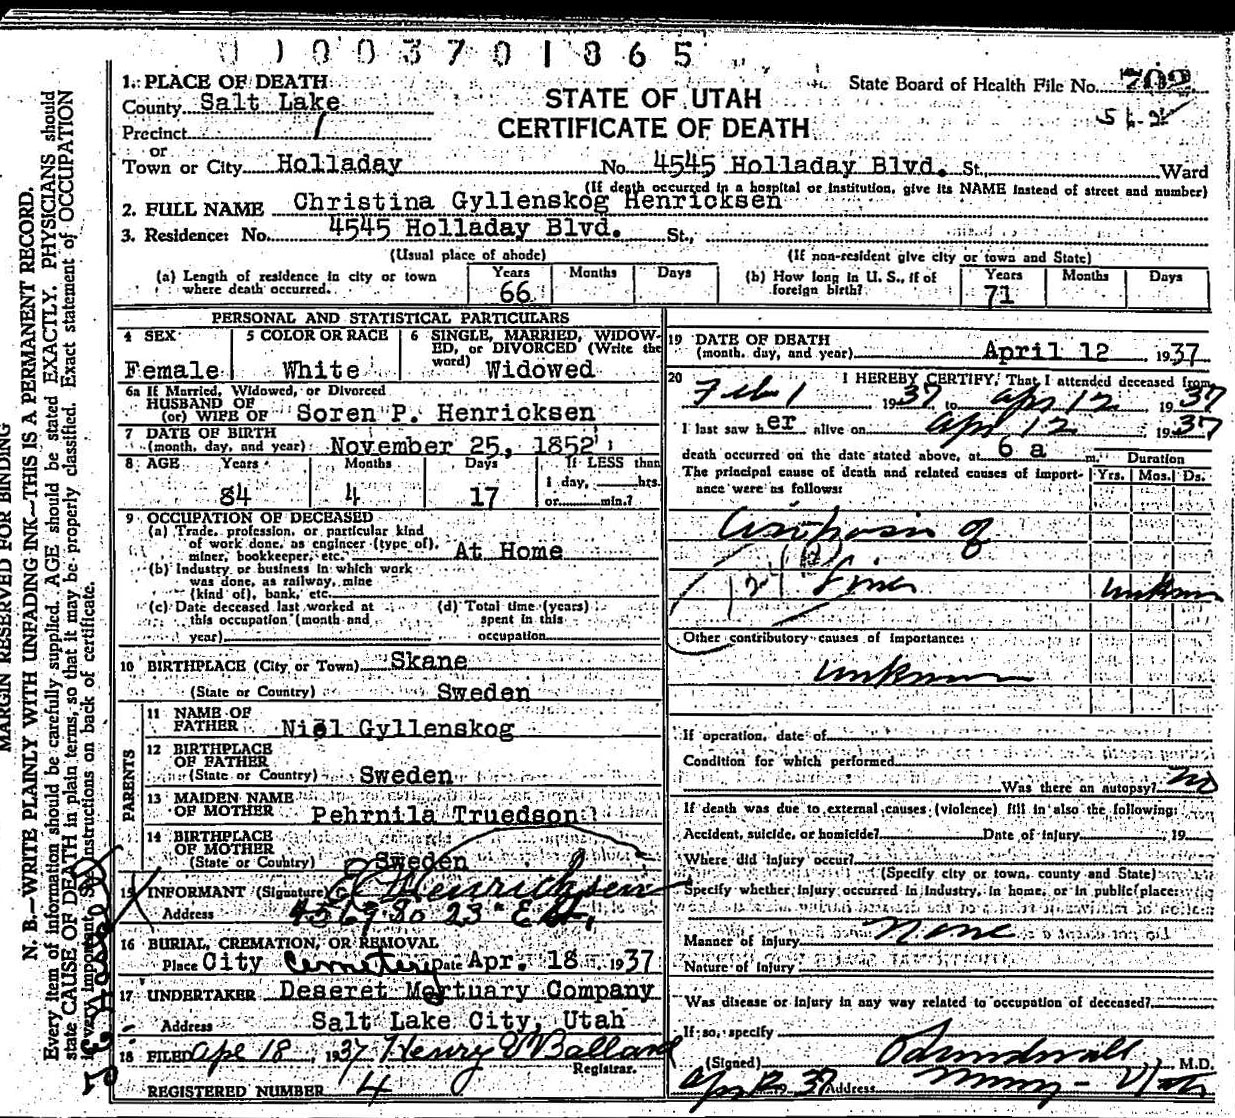 1003701865
1. PLACE OF DEATH
County Salt Lake
Precinct 1
or
Town or City Holladay No. 4545 Holladay Blvd. St., Ward
STATE OF UTAH
CERTIFICATE OF DEATH
State Board of Health File No. 702
(If death occurred in a hospital or institution, give its NAME instead of street and number)
2. FULL NAME Christina Gyllenskog Henricksen
3. Residence: No. 4545 Holladay Blvd. St.,
(Usual place of abode) (If non-resident give city or town and State)
(a) Length of residence in city or town where death occurred. Years 66 Months Days
(b) How long in U. S., if of foreign birth? Years 71 Months Days
PERSONAL AND STATISTICAL PARTICULARS
4 SEX Female
5 COLOR OR RACE White
6 SINGLE, MARRIED, WIDOWED, or DIVORCED (Write the word) Widowed
6a If Married, Widowed, or Divorced
HUSBAND OF
(or) WIFE OF Soren P. Henricksen
7 DATE OF BIRTH
(month, day, and year) November 25, 1852
8 AGE Years 84 Months 4 Days 17 If LESS than 1 day, hrs. or min.?
9 OCCUPATION OF DECEASED
(a) Trade, profession, or particular kind
of work done, as engineer (type of),
miner, bookkeeper, etc. At Home
(b) Industry or business in which work
was done, as railway, mine
(kind of), bank, etc.
(c) Date deceased last worked at this occupation (month and year)
(d) Total time (years) spent in this occupation
10 BIRTHPLACE (City or Town) Skane
(State or Country) Sweden
PARENTS
11 NAME OF
FATHER Niel Gyllenskog
12 BIRTHPLACE
OF FATHER
(State or Country) Sweden
13 MAIDEN NAME
OF MOTHER Pehrnila Truedson
14 BIRTHPLACE
OF MOTHER
(State or Country) Sweden
15 INFORMANT (Signature) Henricksen
Address 4569 So 23" E St,
16 BURIAL, CREMATION, OR REMOVAL
Place City Cemetery Date Apr. 18, 1937
17 UNDERTAKER Deseret Mortuary Company
Address Salt Lake City, Utah
18 FILED Apr 18, 1937 Henry Ballard
Registrar.
REGISTERED NUMBER 4
19 DATE OF DEATH
(month, day, and year) April 12, 1937
20 I HEREBY CERTIFY, That I attended deceased from
Feb 1 1937 to Apr 12 1937
I last saw her alive on Apr 12 1937
death occurred on the date stated above, at 6 a m. Duration
The principal cause of death and related causes of importance were as follows: Yrs. Mos. Ds.
of
124
Liver unknown
Other contributory causes of importance:
unknown
If operation, date of
Condition for which performed
Was there an autopsy? no
If death was due to external causes (violence) fill in also the following:
Accident, suicide, or homicide? Date of injury , 19
Where did injury occur?
(Specify city or town, county and State)
Specify whether injury occurred in industry, in home, or in public place:
Manner of injury None
Nature of injury
Was disease or injury in any way related to occupation of deceased?
If so, specify
(Signed) M.D.
Apr 37 Address Murray - Utah
MARGIN RESERVED FOR BINDING
N. B.—WRITE PLAINLY WITH UNFADING INK—THIS IS A PERMANENT RECORD.
Every item of information should be carefully supplied. AGE should be stated EXACTLY. PHYSICIANS should
state CAUSE OF DEATH in plain terms, so that it may be properly classified. Exact statement of OCCUPATION
is very important. See instructions on back of certificate.